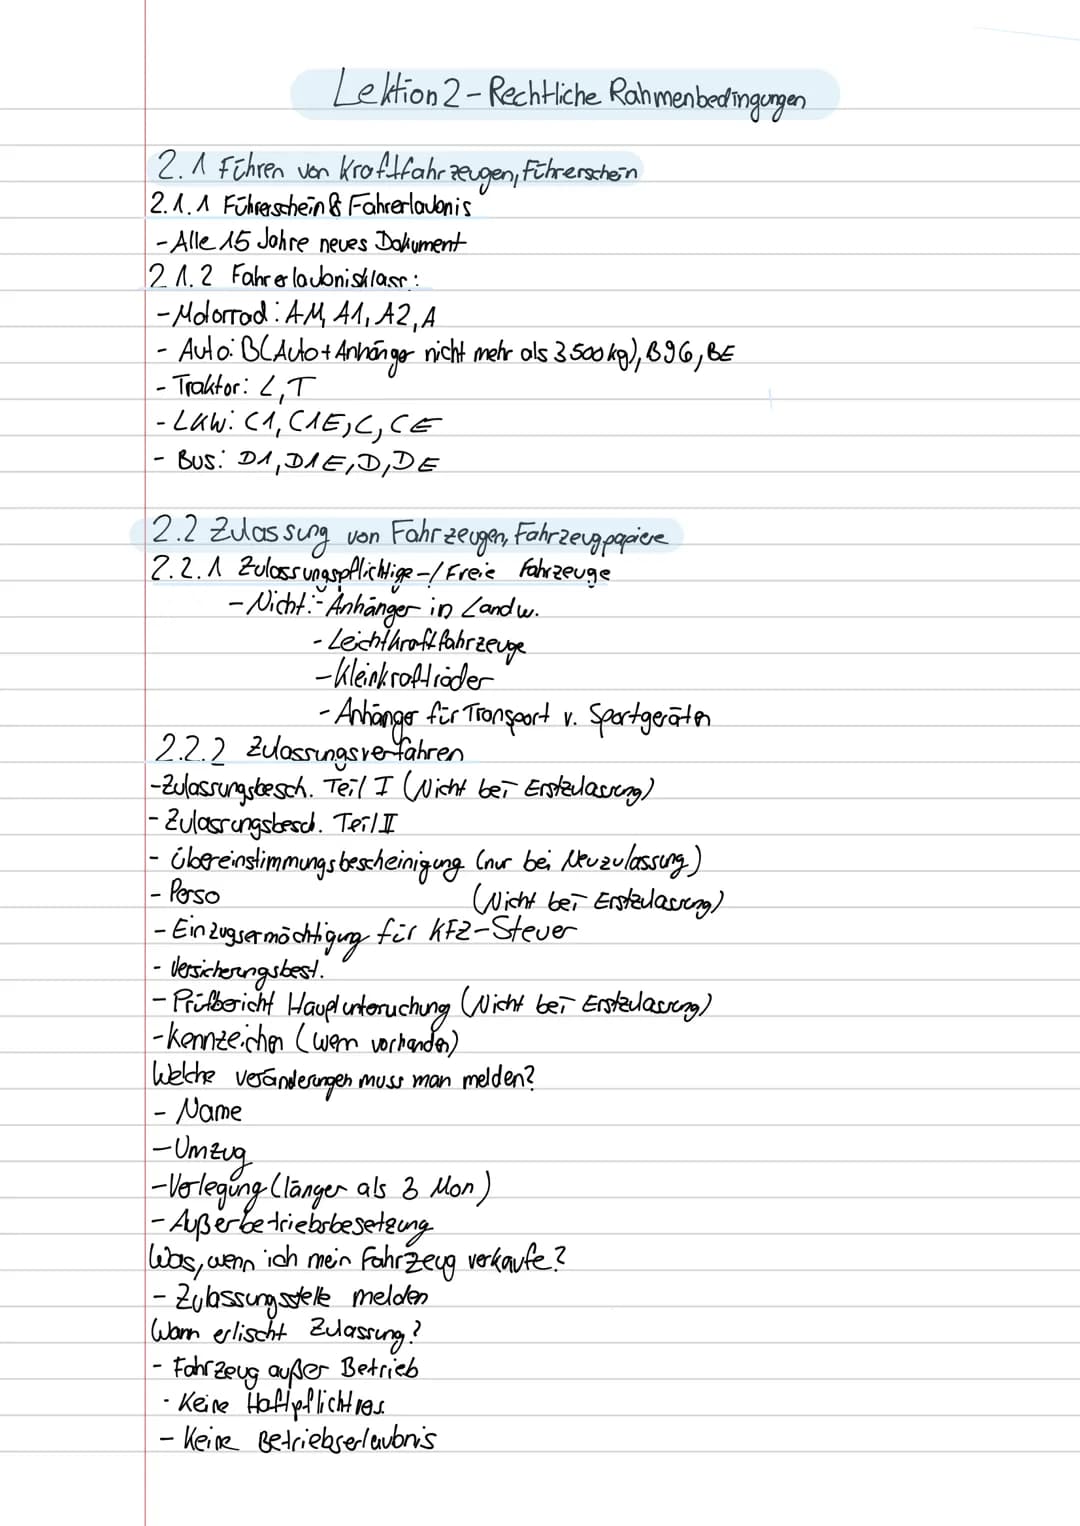 Lektion 2 - Rechtliche Rahmenbedingungen
2.1 Führen von Kraftfahrzeugen, Führerschein
2.1.1 Führerschein & Fahrerlaubnis
- Alle 15 Jahre neues Dokument
2.1.2 Fahrerlaubnisklass.:
- Motorrad: AM, A1, A2, A
- Auto: B (Auto + Anhänger nicht mehr als 3500 kg), B96, BE
- Traktor: L, T
- LKW: C1, C1E, C, CE
- Bus: D1, D1E, D, DE
2.2 Zulassung von Fahrzeugen, Fahrzeugpapiere
2.2.1 Zulassungspflichtige -/ Freie Fahrzeuge
- Nicht: - Anhänger in Landw.
- Leichtkraftfahrzeuge
- Kleinkrafträder
- Anhänger für Transport v. Sportgeräten
2.2.2 Zulassungsverfahren
- Zulassungsbesch. Teil I (Nicht bei Erstzulassung)
- Zulassungsbesch. Teil II
- Übereinstimmungsbescheinigung (nur bei Neuzulassung)
- Perso (Nicht bei Erstzulassung)
- Einzugsermächtigung für KFZ-Steuer
- Versicherungsbest.
- Prüfbericht Hauptuntersuchung (Nicht bei Erstzulassung)
- Kennzeichen (wenn vorhanden)
Welche Veränderungen muss man melden?
- Name
- Umzug
- Verlegung (länger als 3 Mon)
- Außerbetriebsbesetzung
Was, wenn ich mein Fahrzeug verkaufe?
- Zulassungsstelle melden
Wann erlischt Zulassung?
- Fahrzeug außer Betrieb
- Keine Haftpflichtves.
- Keine Betriebserlaubnis